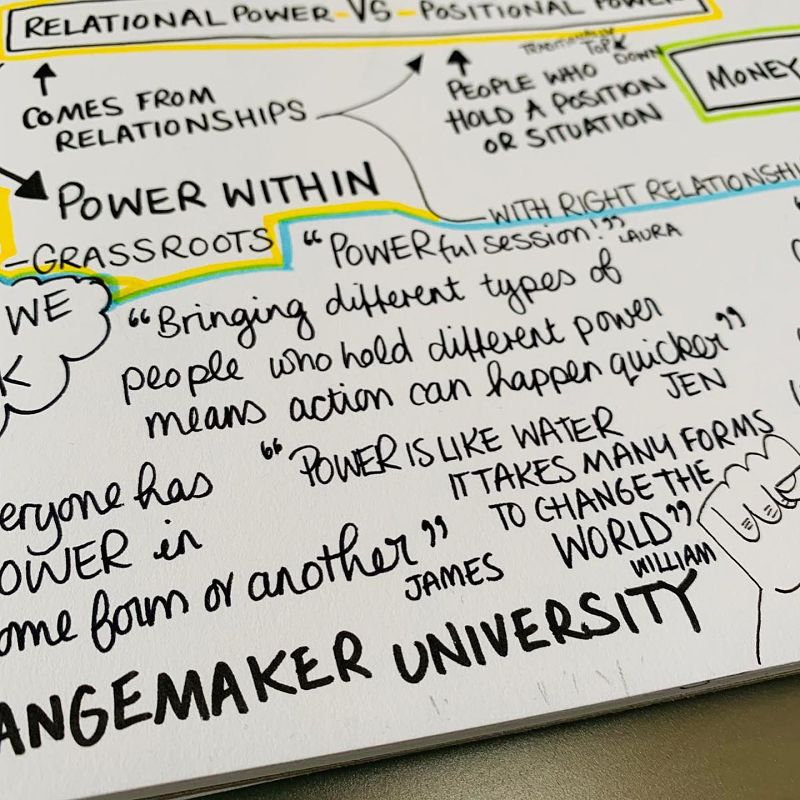 RELATIONAL POWER - VS - POSITIONAL POWER
TRADITIONALLY
TOP
DOWN
COMES FROM
RELATIONSHIPS
PEOPLE WHO
HOLD A POSITION
OR SITUATION
MONEY
POWER WITHIN
- GRASSROOTS
WITH RIGHT RELATIONSHI
"POWERful session!" LAURA
WE
K
"Bringing different types of
people who hold different power
means action can happen quicker"
JEN
eryone has
OWER in
ome form or another"
JAMES
"POWER IS LIKE WATER
IT TAKES MANY FORMS
TO CHANGE THE
WORLD"
WILLIAM
ANGEMAKER UNIVERSITY